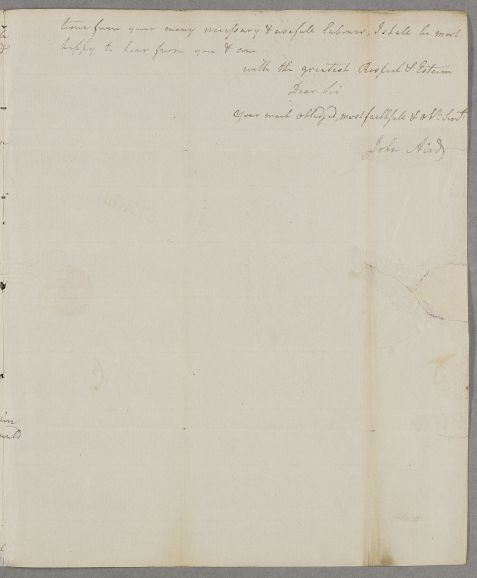 time from your many necessary & usefule labours, I shale be most
happy to hear from you & am
with the greatest Respect & Esteem
Dear Sir
Your much obliged, most faithfule & obt: Servt
John Aird